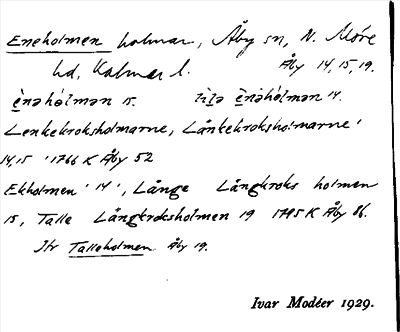 Eneholmen holmar, Åby sn, N. Möre
hd, Kalmar l. Åby 14, 15, 19.
è̀nəhòlmən 15. lìlə è̀nəhólmən 14.
Lenkekroksholmarne, Lånkekroksholmarne'
14, 15 ' 1766 K Åby 52
Ekholmen' 14', Långe Långkroks holmen
15, Talle Långkroksholmen 19 1795 K Åby 86.
Jfr Talleholmen Åby 19.
Ivar Modéer 1929.